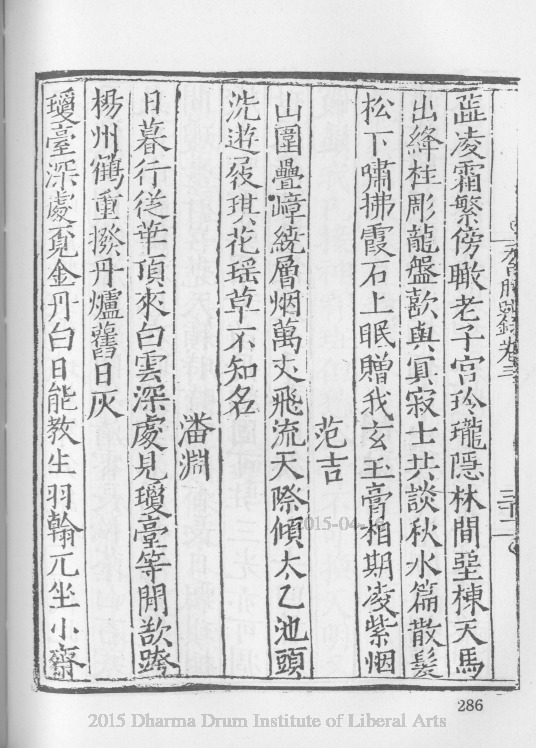 蓝凌霜繁傍瞰老子宫玲瓏隱林間堊棟天馬
出絳柱彫龍盤歎與寘寂士共談秋水篇散髮
松下嘯拂霞石上眠贈我玄玉膏相期凌紫烟
范吉
山圍疊嶂繞層烟萬丈飛流天際傾太乙池頭
洗遊屐琪花瑶草不知名
潘淵
日暮行從華頂來白雲深處見瓊臺等閒欲跨
楊州鶴重撥丹爐舊日灰
瓊臺深處覓金丹白日能教生羽翰兀坐小齋
286
2015-04-
2015 Dharma Drum Institute of Liberal Arts